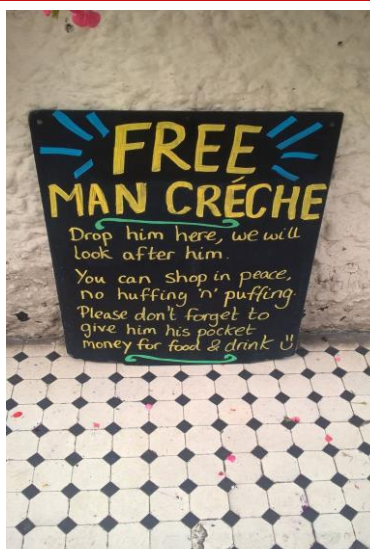 FREE
MAN CRÉCHE
Drop him here, we will
look after him.
You can shop in peace,
no huffing 'n' puffing.
Please don't forget to
give him his pocket
money for food & drink